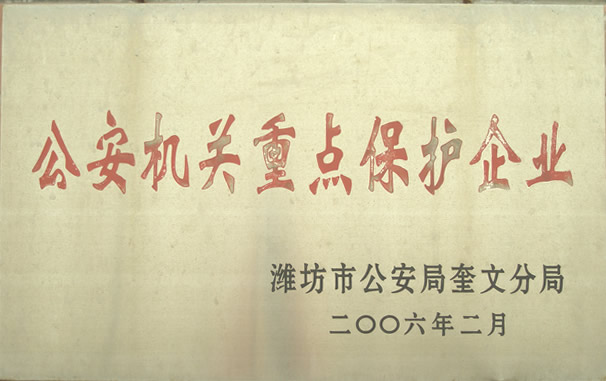 公安机关重点保护企业
潍坊市公安局奎文分局
二〇〇六年二月